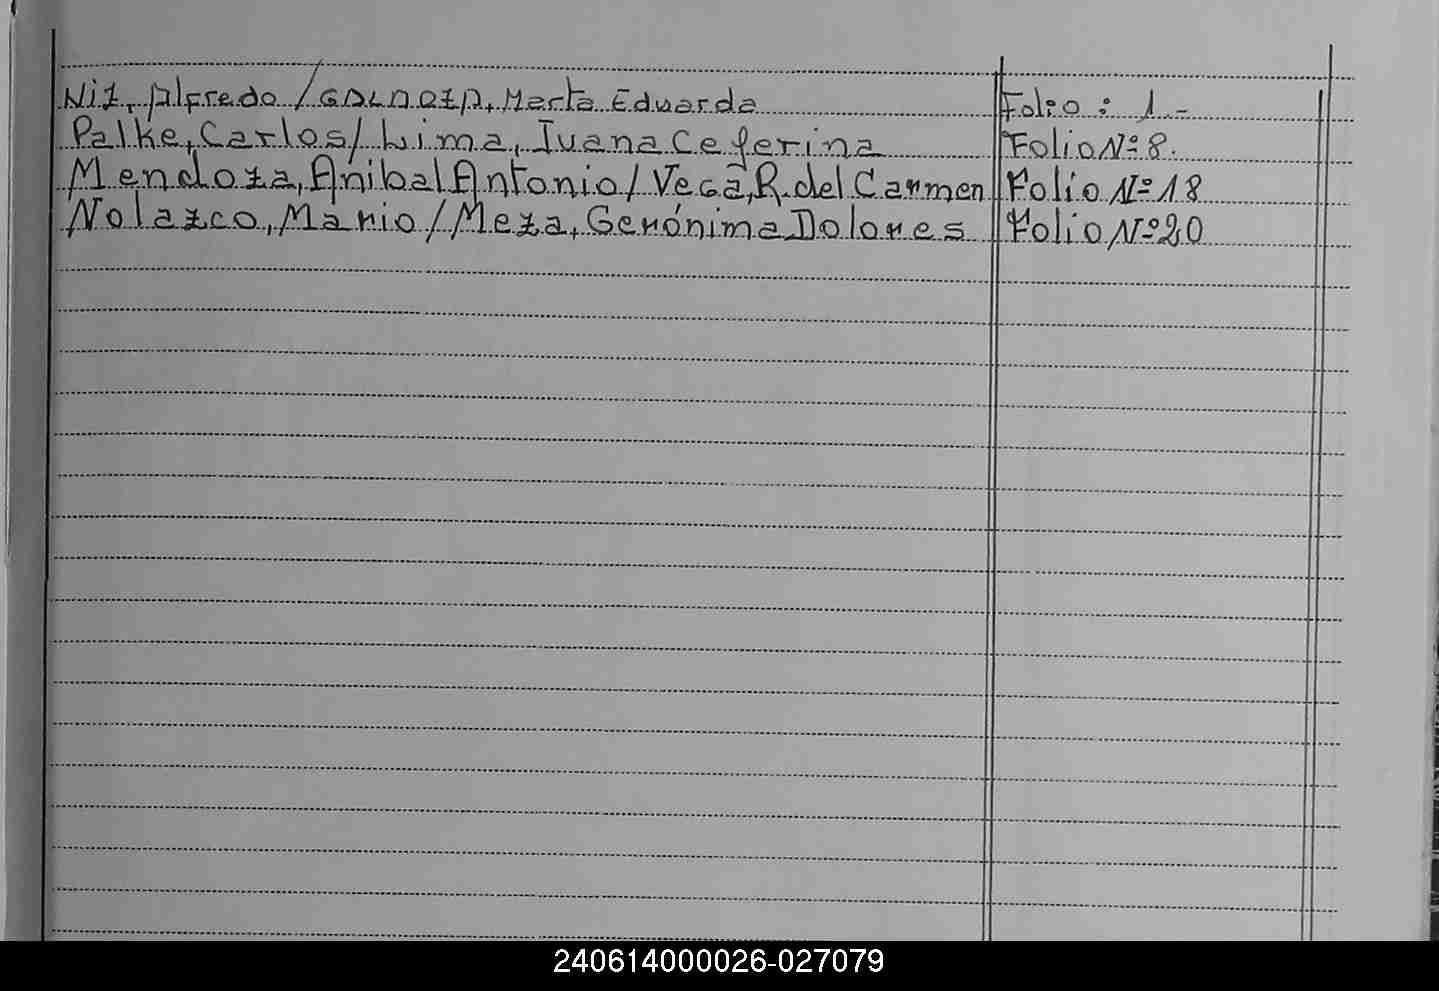 Niz, Alfredo / GALARZA, Marta Eduarda Folio: 1.-
Palke, Carlos / Lima, Juana Ceferina Folio Nº 8.
Mendoza, Anibal Antonio / Vega, R. del Carmen Folio Nº 18
Nolazco, Mario / Meza, Gerónima Dolores Folio Nº 20
240614000026-027079